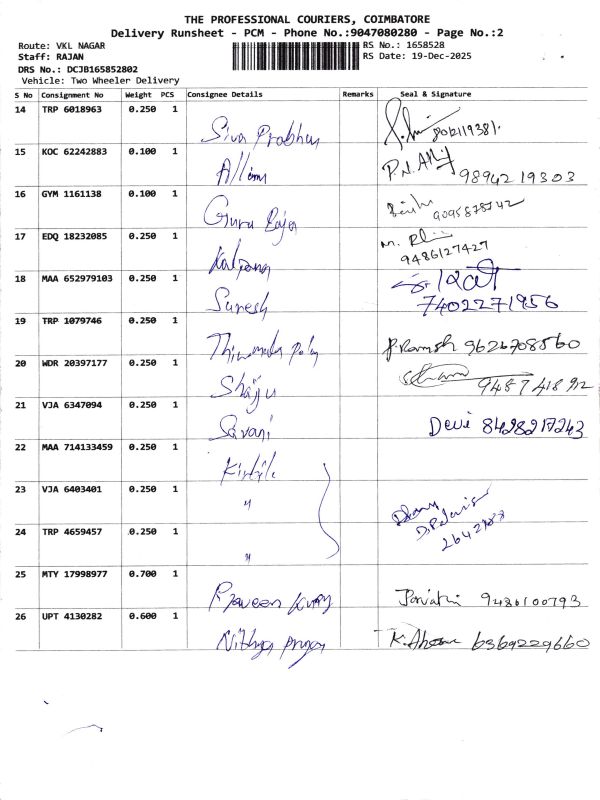 THE PROFESSIONAL COURIERS, COIMBATORE
Delivery Runsheet - PCM - Phone No.:9047080280 - Page No.:2
Route: VKL NAGAR
Staff: RAJAN
DRS No.: DCJB165852802
Vehicle: Two Wheeler Delivery
RS No.: 1658528
RS Date: 19-Dec-2025
S No Consignment No Weight PCS Consignee Details Remarks Seal & Signature
14 TRP 6018963 0.250 1
Siva Prabhu
15 KOC 62242883 0.100 1
P.N. 98942 19303
16 GYM 1161138 0.100 1
Guru Raja
17 EDQ 18232085 0.250 1
Kalpana M.
9486127427
18 MAA 652979103 0.250 1
Suresh 7402271956
19 TRP 1079746 0.250 1
P. Ramesh 9626708560
20 WDR 20397177 0.250 1
Shaiju
21 VJA 6347094 0.250 1
Devi 8428217243
22 MAA 714133459 0.250 1
23 VJA 6403401 0.250 1
"
24 TRP 4659457 0.250 1
"
25 MTY 17998977 0.700 1
Praveen Kumar 9486100793
26 UPT 4130282 0.600 1
Nithya K. 6369229660